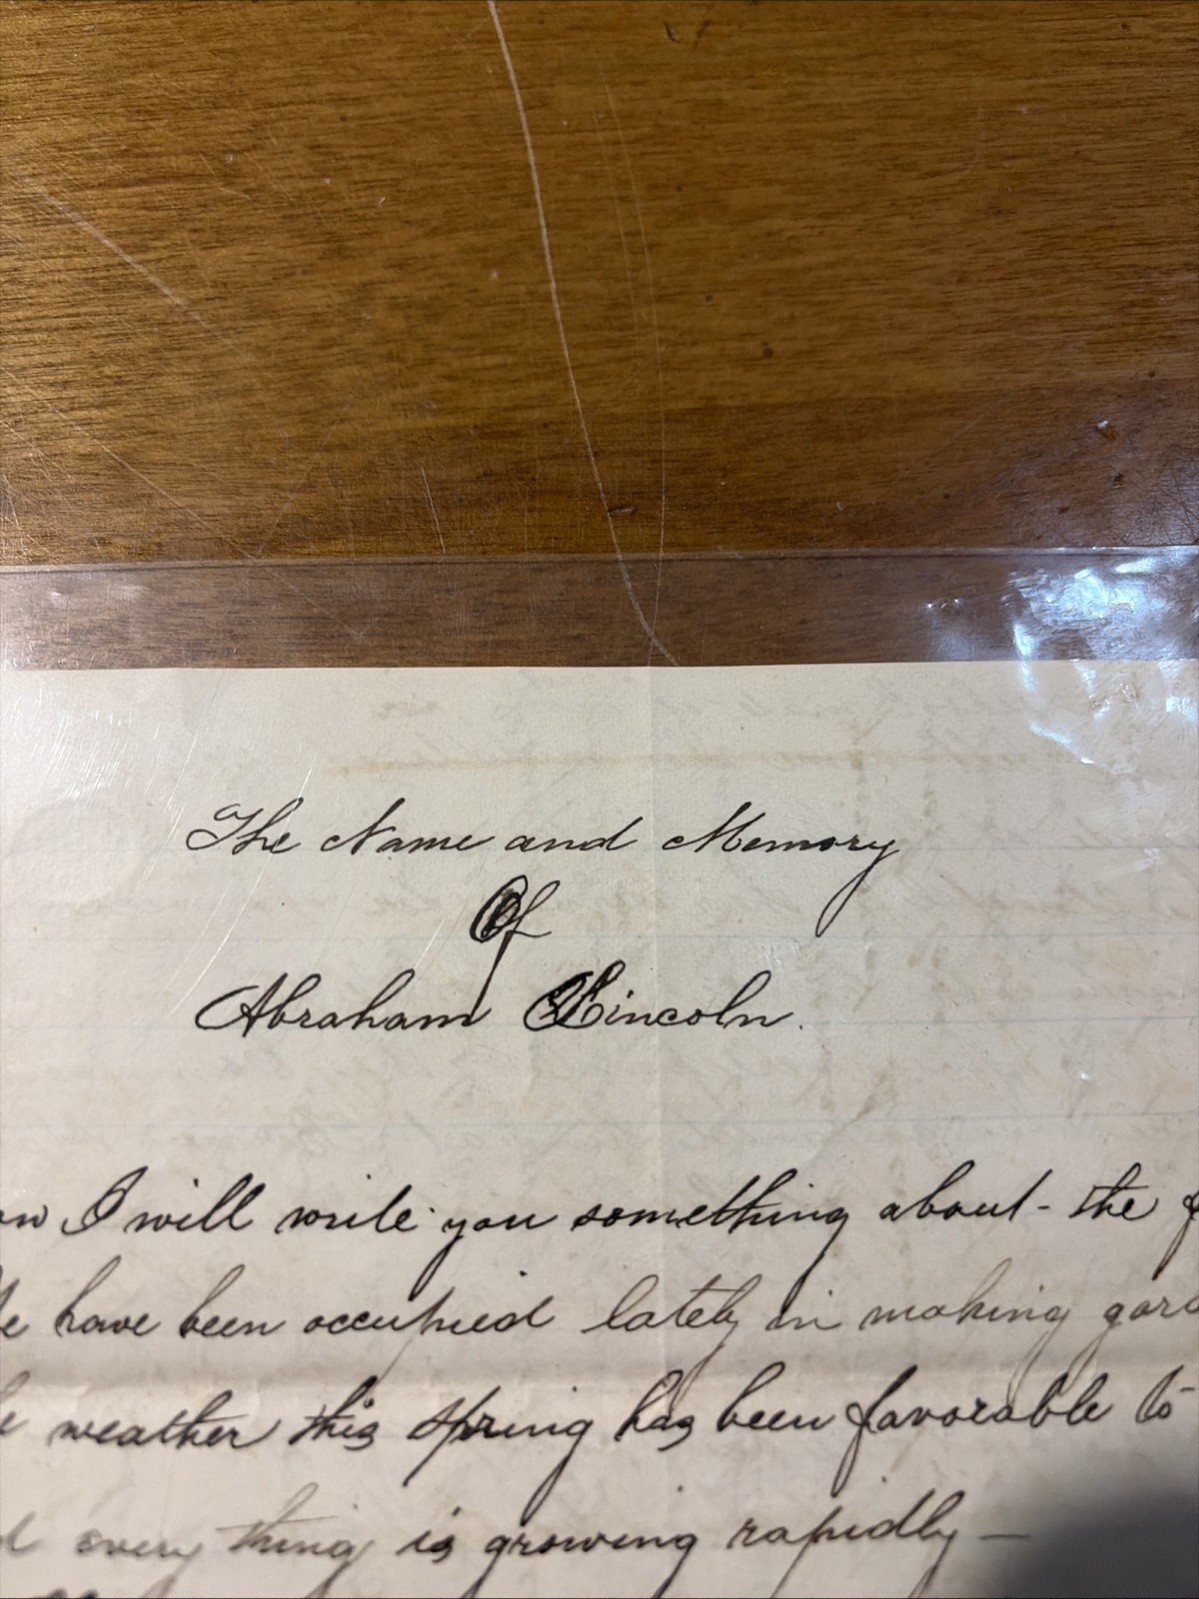 The Name and Memory
Of
Abraham Lincoln.
I will write you something about - the
have been occupied lately in making
weather this spring has been favorable to
every thing is growing rapidly —